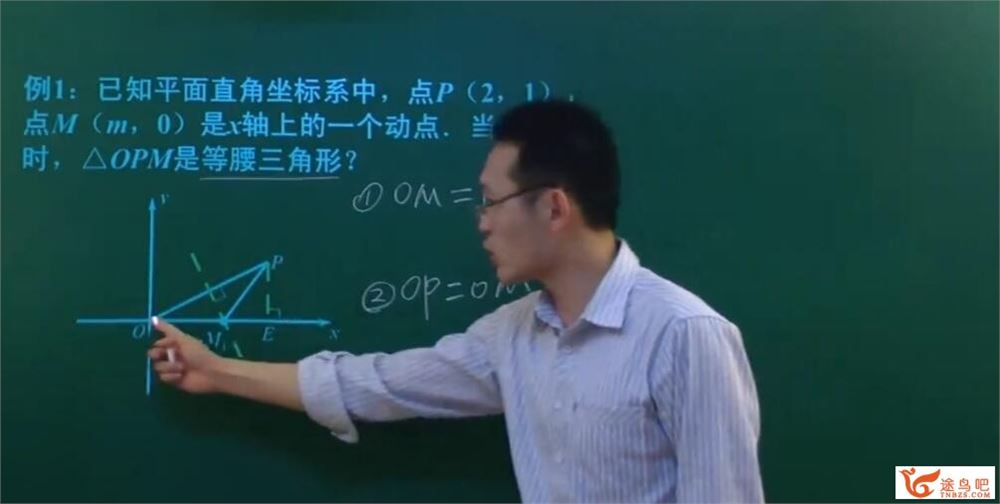 例1：已知平面直角坐标系中，点P（2，1），
点M（m，0）是x轴上的一个动点．当
时，△OPM是等腰三角形？
y
① OM=
P
② OP=OM
O
M₁
E
x
途鸟吧
TNBZS.COM